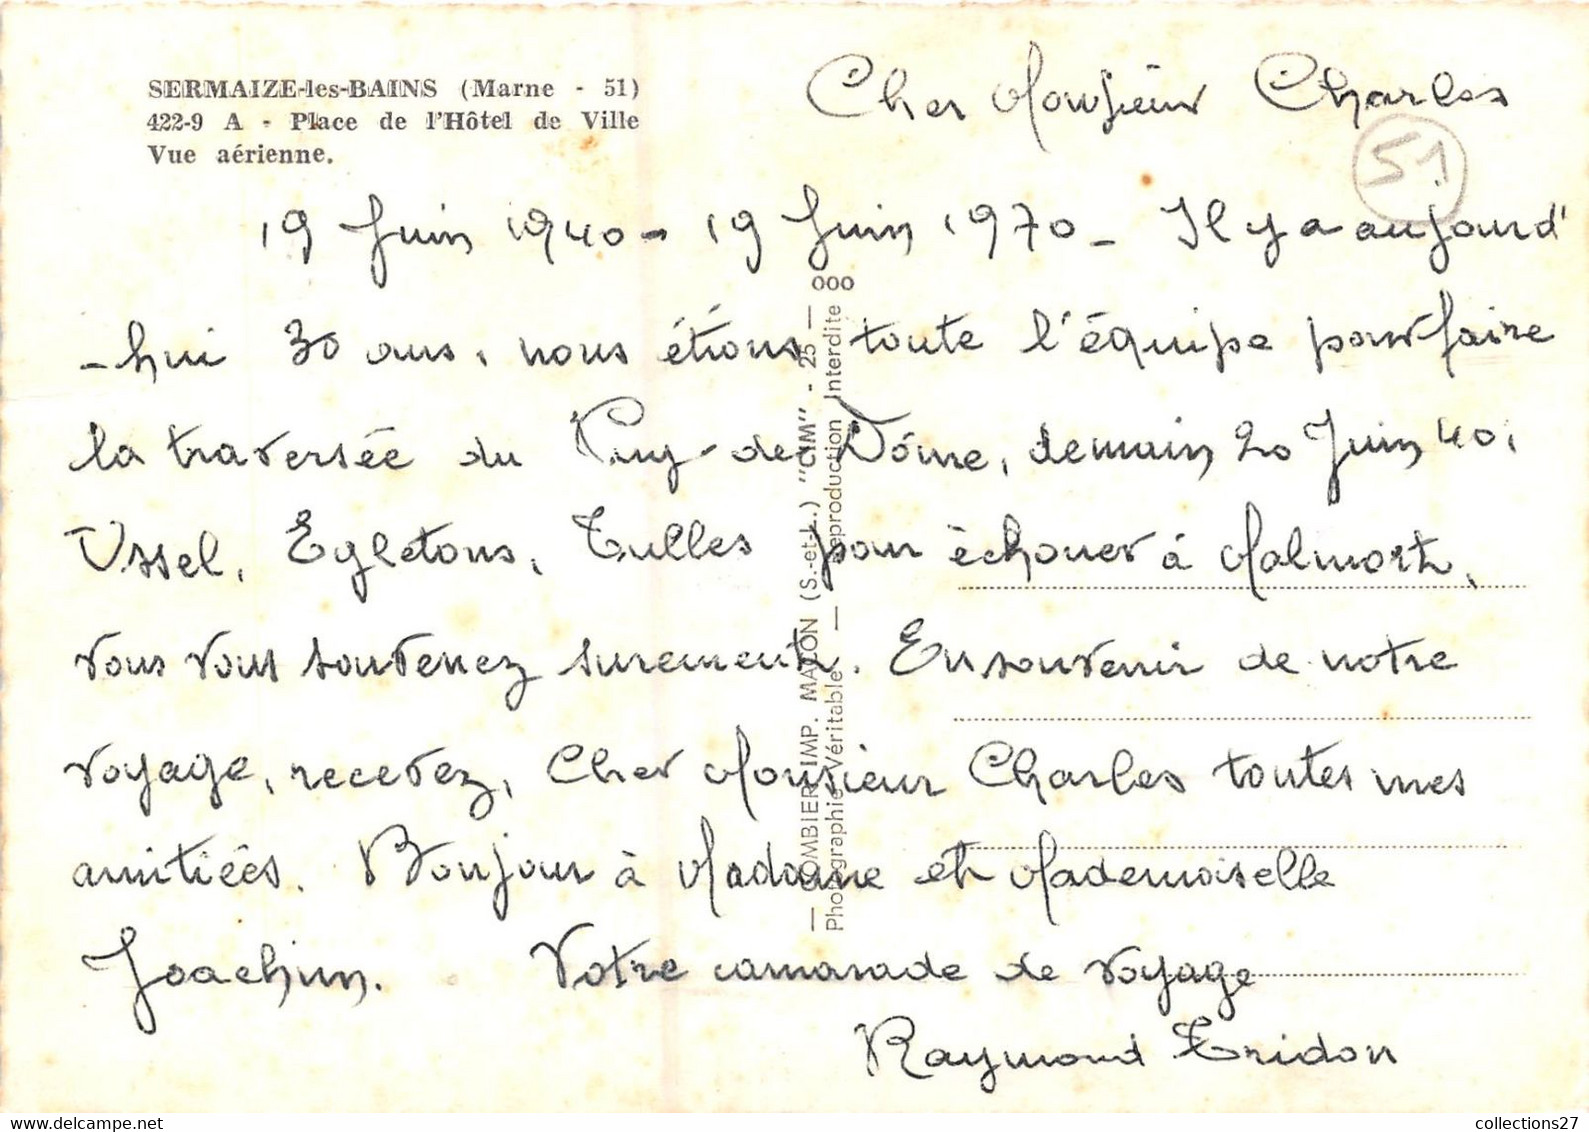 SERMAIZE-les-BAINS (Marne - 51)
422-9 A - Place de l'Hôtel de Ville
Vue aérienne.
Cher Monsieur Charles
51
19 Juin 1940 - 19 Juin 1970 - Il y a aujourd'
-hui 30 ans, nous étions toute l'équipe pour faire
la traversée du Puy-de-Dôme, demain 20 Juin 40,
Ussel, Egletons, Tulles pour échouer à Malmort,
vous vous souvenez surement. En souvenir de notre
voyage, recevez, Cher Monsieur Charles toutes mes
amitiées. Bonjour à Madame et Mademoiselle
Joachim. Votre camarade de voyage
Raymond Tridon
— COMBIER IMP. MACON (S.-et-L.) "CIM" - 25 — 000
Photographie Véritable — Reproduction Interdite
collections27